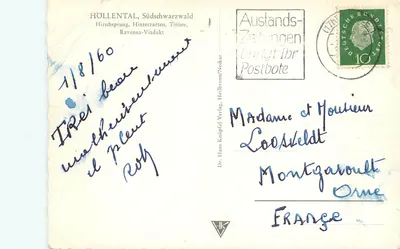 HÖLLENTAL, Südschwarzwald
Hirschsprung, Hinterzarten, Titisee,
Ravenna-Viadukt
Auslands-
Zeitungen
bringt Ihr
Postbote
DEUTSCHE BUNDESPOST
10
1/8/60
beau
malheureusement
il pleut
Dr. Hans Königsfeld Verlag, Heilbronn/Neckar
Madame et Monsieur
Loosveldt
Montgaroult
Orne
FRANCE